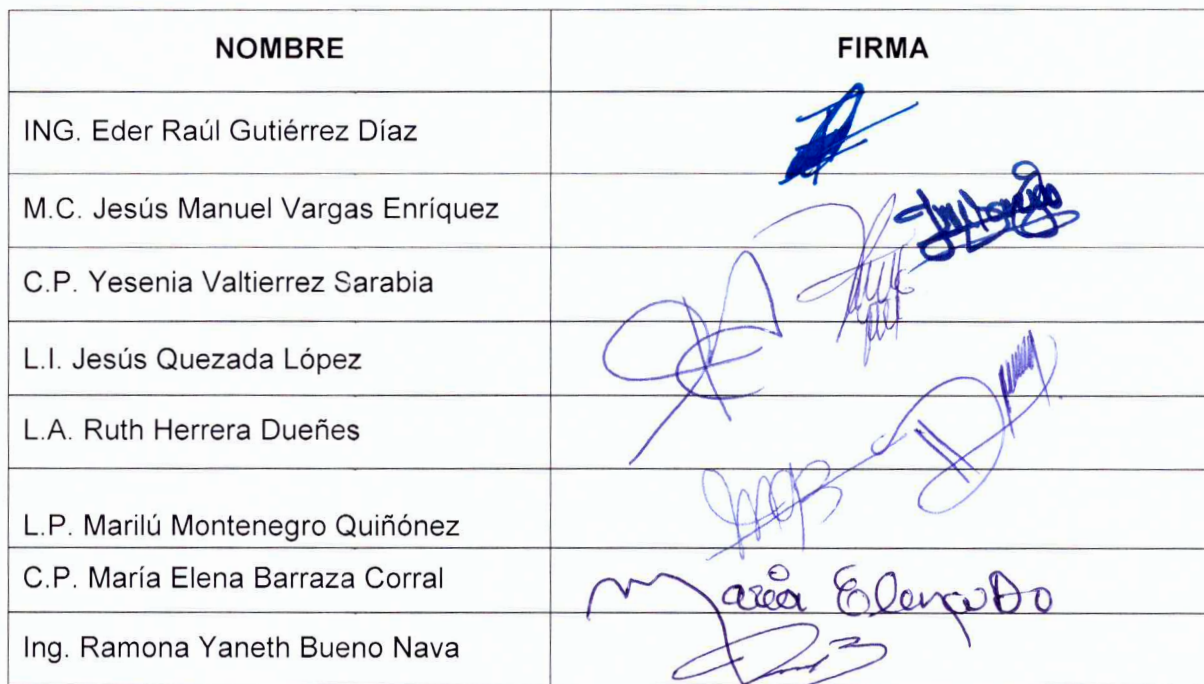 NOMBRE FIRMA
ING. Eder Raúl Gutiérrez Díaz
M.C. Jesús Manuel Vargas Enríquez
C.P. Yesenia Valtierrez Sarabia
L.I. Jesús Quezada López
L.A. Ruth Herrera Dueñes
L.P. Marilú Montenegro Quiñónez
C.P. María Elena Barraza Corral
María Elena
Ing. Ramona Yaneth Bueno Nava